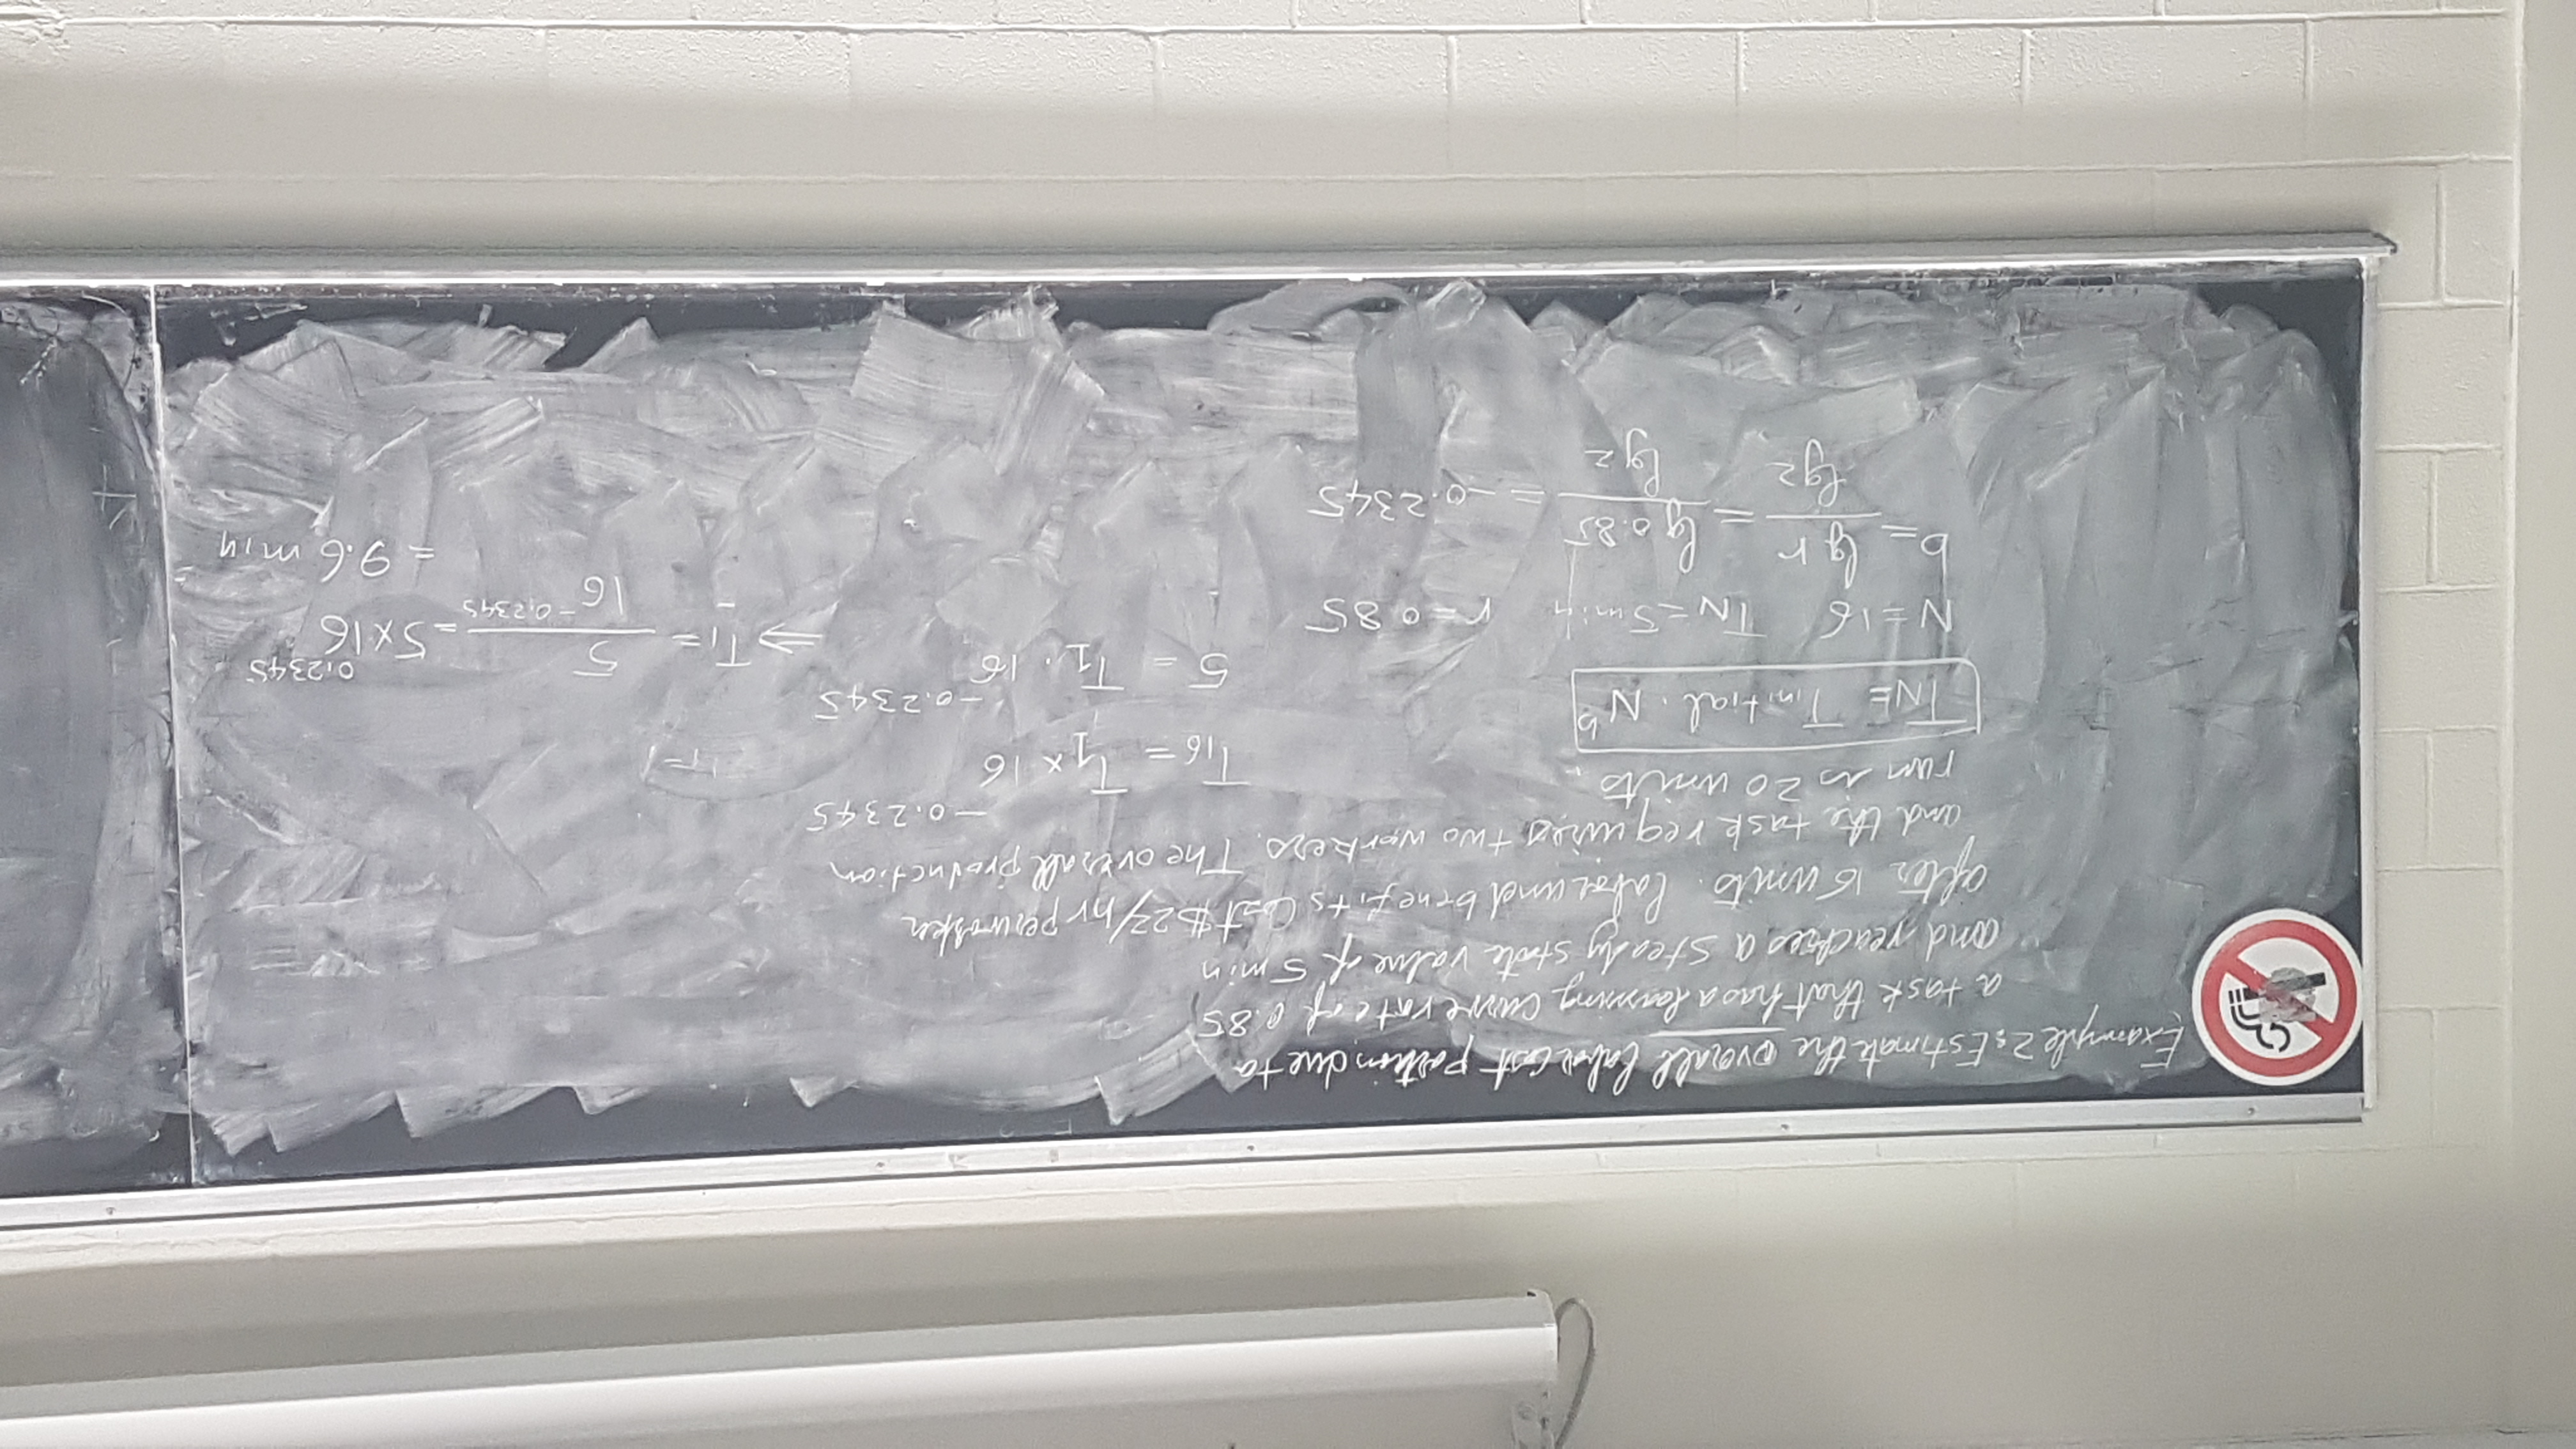 Example 2: Estimate the overall labor cost portion due to
a task that has a learning curve rate of 0.85
and reaches a steady state value of 5 min
after 16 units. labor and benefits cost $22/hr per worker
and the task requires two workers. The overall production
run is 20 units.
TN = Tinitial . N^b
N = 16 TN = 5 min r = 0.85
b = lg r / lg 2 = lg 0.85 / lg 2 = -0.2345
T16 = T1 x 16^-0.2345
5 = T1 . 16^-0.2345
⇒ T1 = 5 / 16^-0.2345 = 5 x 16^0.2345
= 9.6 min